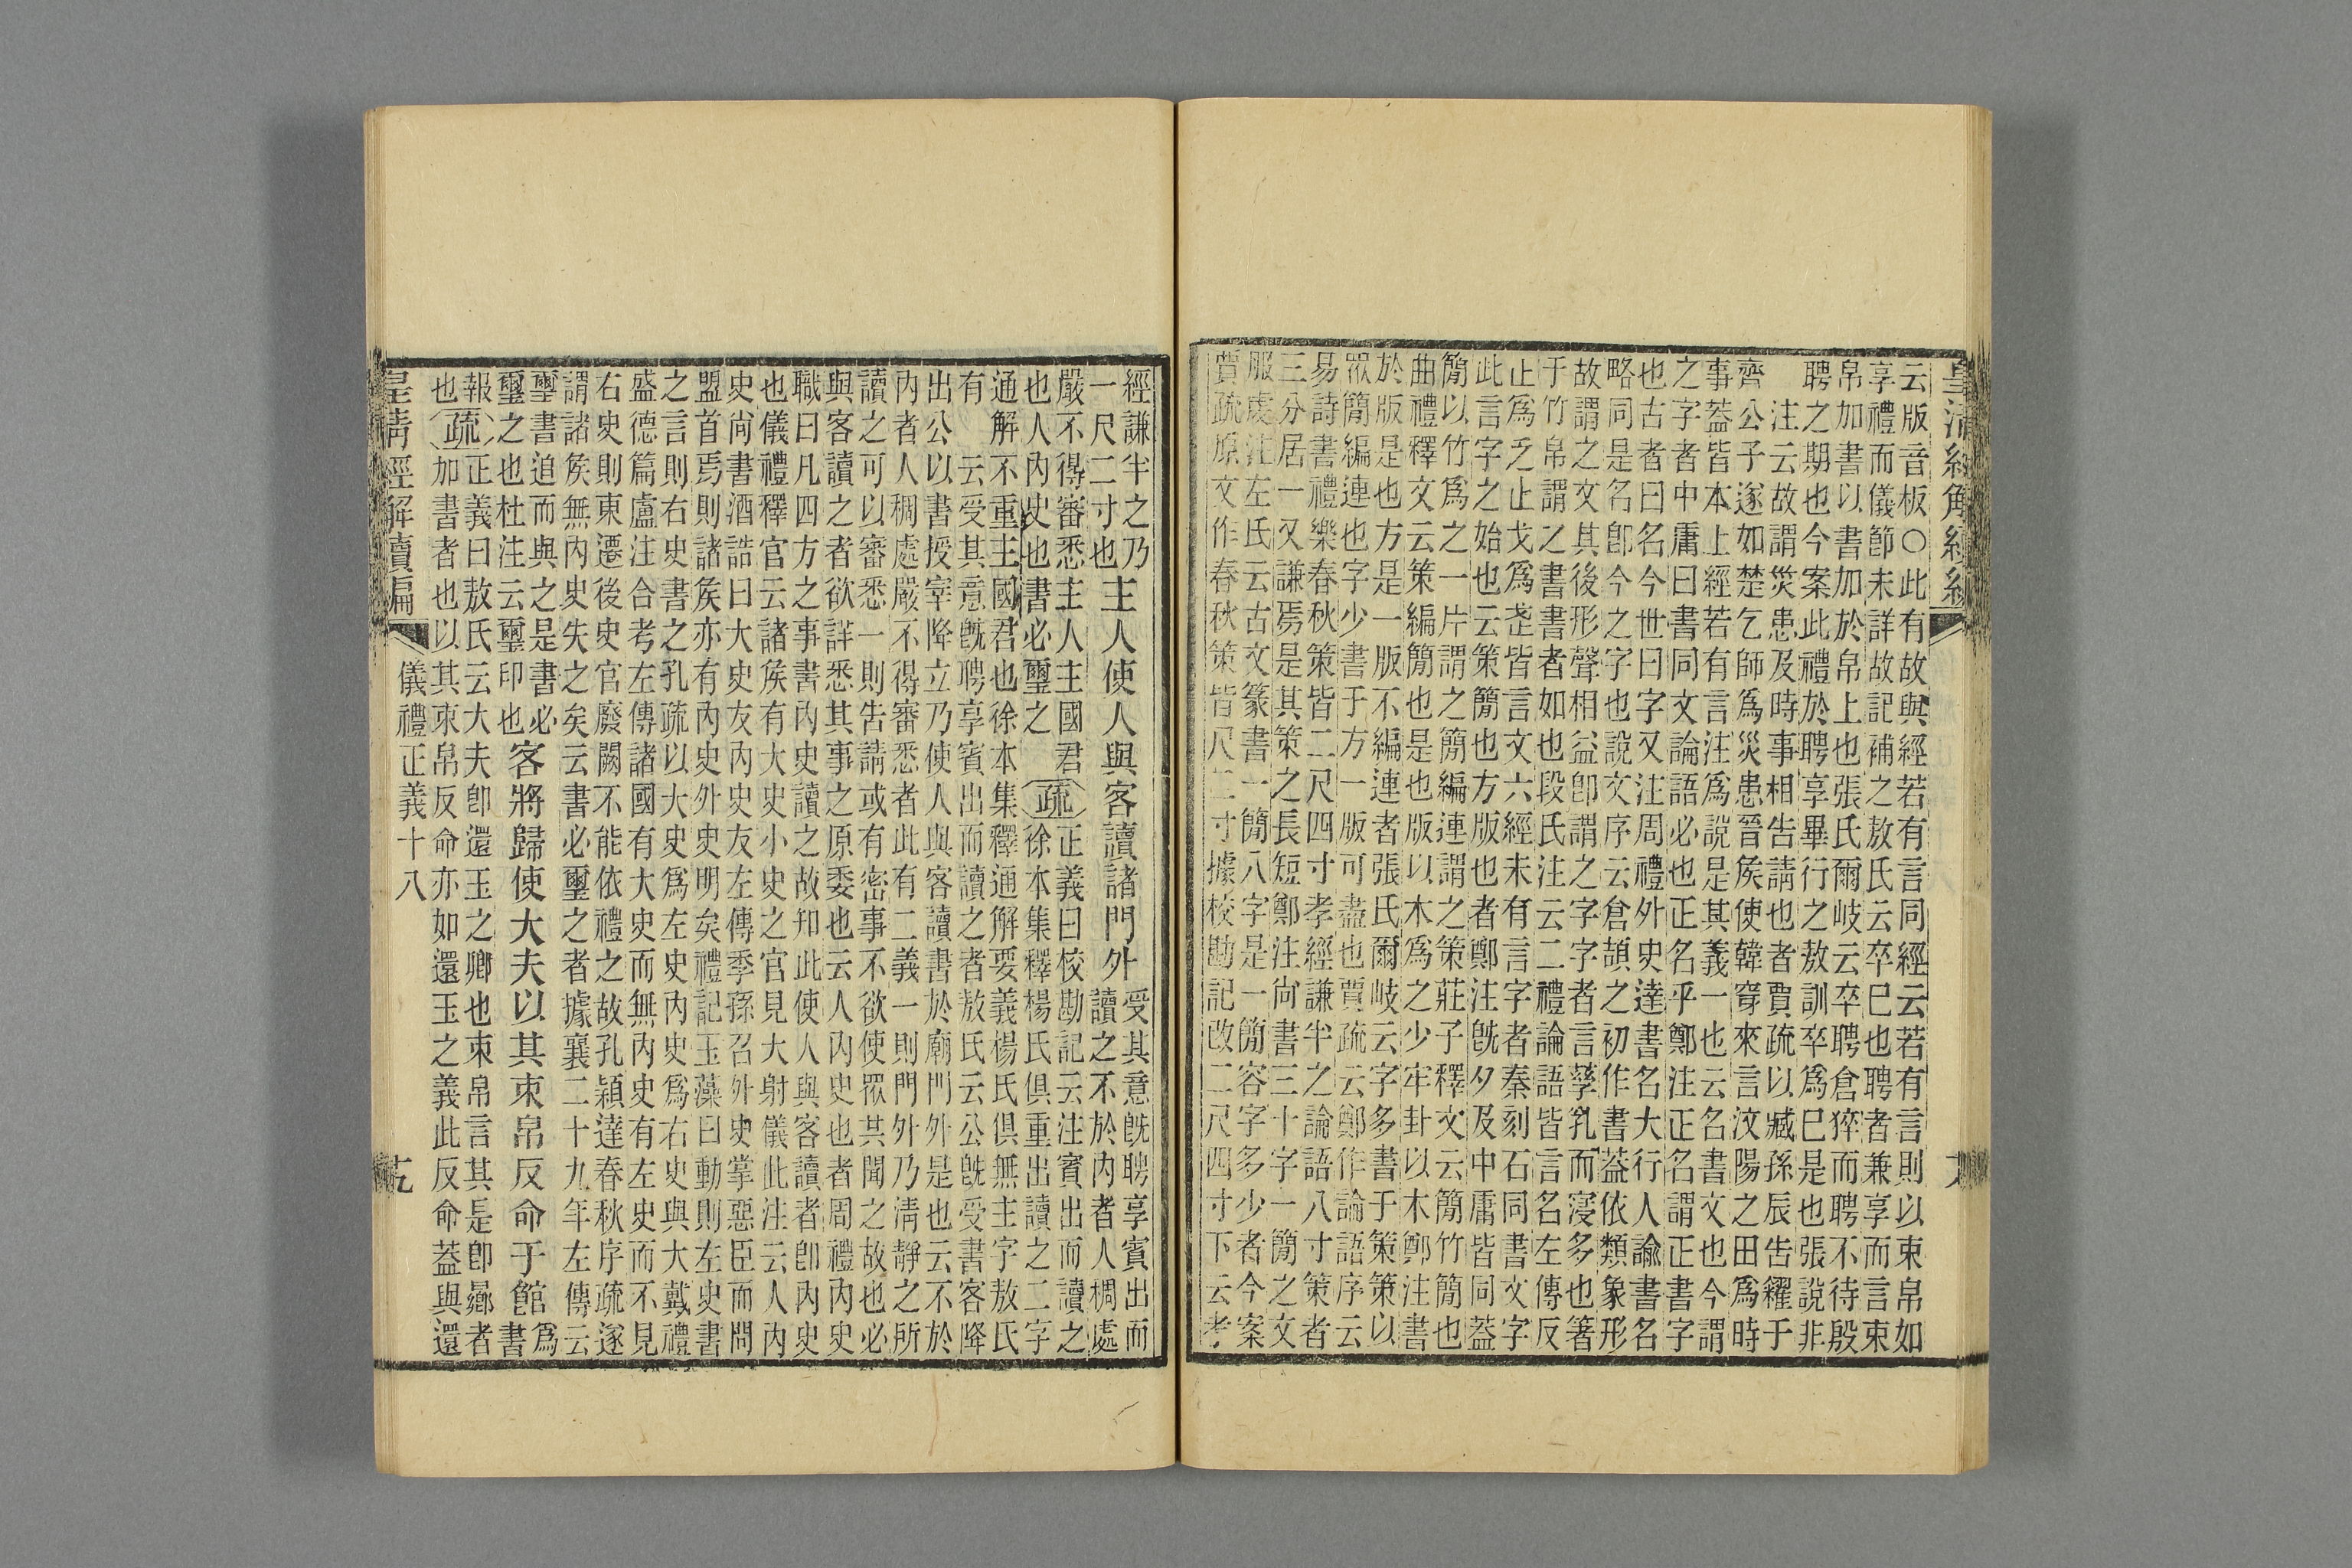 云版音板○此有故與經若有言同經云若有言則以束帛如
享禮而儀節未詳故記補之敖氏云卒巳也聘者兼享而言束
帛加書以書加於帛上也張氏爾岐云卒聘倉猝而聘不待殷
聘之期也今案此禮於聘享畢行之敖訓卒爲巳是也張說非
注云故謂災患及時事相告請也者賈疏以臧孫辰告糴于
齊公子遂如楚乞師爲災患晉矦使韓穿來言汶陽之田爲時
事葢皆本上經若有言注爲說是其義一也云名書文也今謂
之字者中庸曰書同文論語必也正名乎鄭注正名謂正書字
也古者曰名今世曰字又注周禮外史達書名大行人諭書名
略同是名卽今之字也說文序云倉頡之初作書葢依類象形
故謂之文其後形聲相益卽謂之字字者言孳乳而寖多也箸
于竹帛謂之書書者如也段氏注云二禮論語皆言名左傳反
止爲乏止戈爲武皆言文六經未有言字者秦刻石同書文字
此言字之始也云策簡也方版也者鄭注旣夕及中庸皆同葢
簡以竹爲之一片謂之簡編連謂之策莊子釋文云簡竹簡也
曲禮釋文云策編簡也是也版以木爲之少牢卦以木鄭注書
於版是也方是一版不編連者張氏爾岐云字多書于策策以
眾簡編連也字少書于方一版可盡也賈疏云鄭作論語序云
易詩書禮樂春秋策皆二尺四寸孝經謙半之論語八寸策者
三分居一又謙焉是其策之長短鄭注尙書三十字一簡之文
服虔注左氏云古文篆書一簡八字是一簡容字多少者今案
賈疏原文作春秋策皆尺二寸據校勘記改二尺四寸下云孝
經謙半之乃
一尺二寸也主人使人與客讀諸門外受其意旣聘享賓出而
讀之不於內者人稠處
嚴不得審悉主人主國君
也人內史也書必璽之疏正義曰校勘記云注賓出而讀之
徐本集釋楊氏俱重出讀之二字
通解不重主國君也徐本集釋通解要義楊氏俱無主字敖氏
有云受其意旣聘享賓出而讀之者敖氏云公旣受書客降
出公以書授宰降立乃使人與客讀書於廟門外是也云不於
內者人稠處嚴不得審悉者此有二義一則門外乃淸靜之所
讀之可以審悉一則告請或有密事不欲使眾其聞之故也必
與客讀之者欲詳悉其事之原委也云人內史也者周禮內史
職曰凡四方之事書內史讀之故知此使人與客讀者卽內史
也儀禮釋官云諸矦有大史小史之官見大射儀此注云人內
史尙書酒誥曰大史友內史友左傳季孫召外史掌惡臣而問
盟首焉則諸矦亦有內史外史明矣禮記玉藻曰動則左史書
之言則右史書之孔疏以大史爲左史內史爲右史與大戴禮
盛德篇盧注合考左傳諸國有大史而無內史有左史而不見
右史則東遷後史官廢闕不能依禮之故孔穎達春秋序疏遂
謂諸矦無內史失之矣云書必璽之者據襄二十九年左傳云
璽書追而與之是書必
璽之也杜注云璽印也客將歸使大夫以其束帛反命于館爲
書
報
也疏正義曰敖氏云大夫卽還玉之卿也束帛言其是卽曏者
加書者也以其束帛反命亦如還玉之義此反命葢與還
皇清經解續編
儀禮正義十八